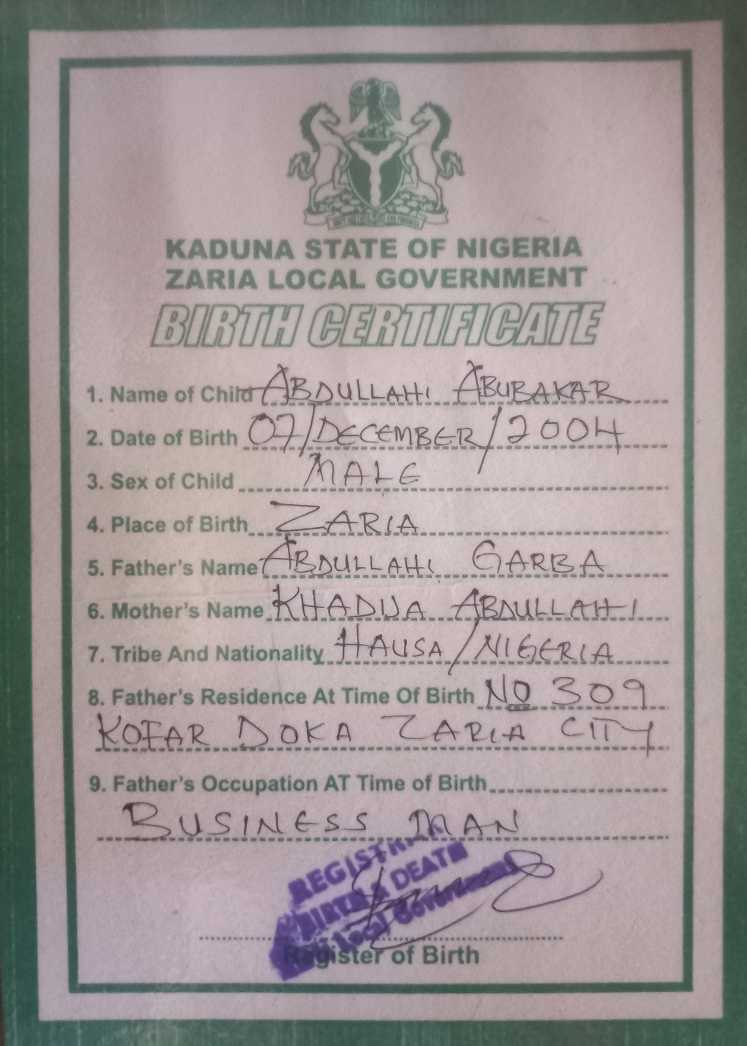 KADUNA STATE OF NIGERIA
ZARIA LOCAL GOVERNMENT
BIRTH CERTIFICATE
1. Name of Child ABDULLAHI ABUBAKAR
2. Date of Birth 07/DECEMBER/2004
3. Sex of Child MALE
4. Place of Birth ZARIA
5. Father's Name ABDULLAHI GARBA
6. Mother's Name KHADIJA ABDULLAHI
7. Tribe And Nationality HAUSA/NIGERIA
8. Father's Residence At Time Of Birth NO 309
KOFAR DOKA ZARIA CITY
9. Father's Occupation AT Time of Birth
BUSINESS MAN
BIRTH & DEATH
Local Government
Register of Birth